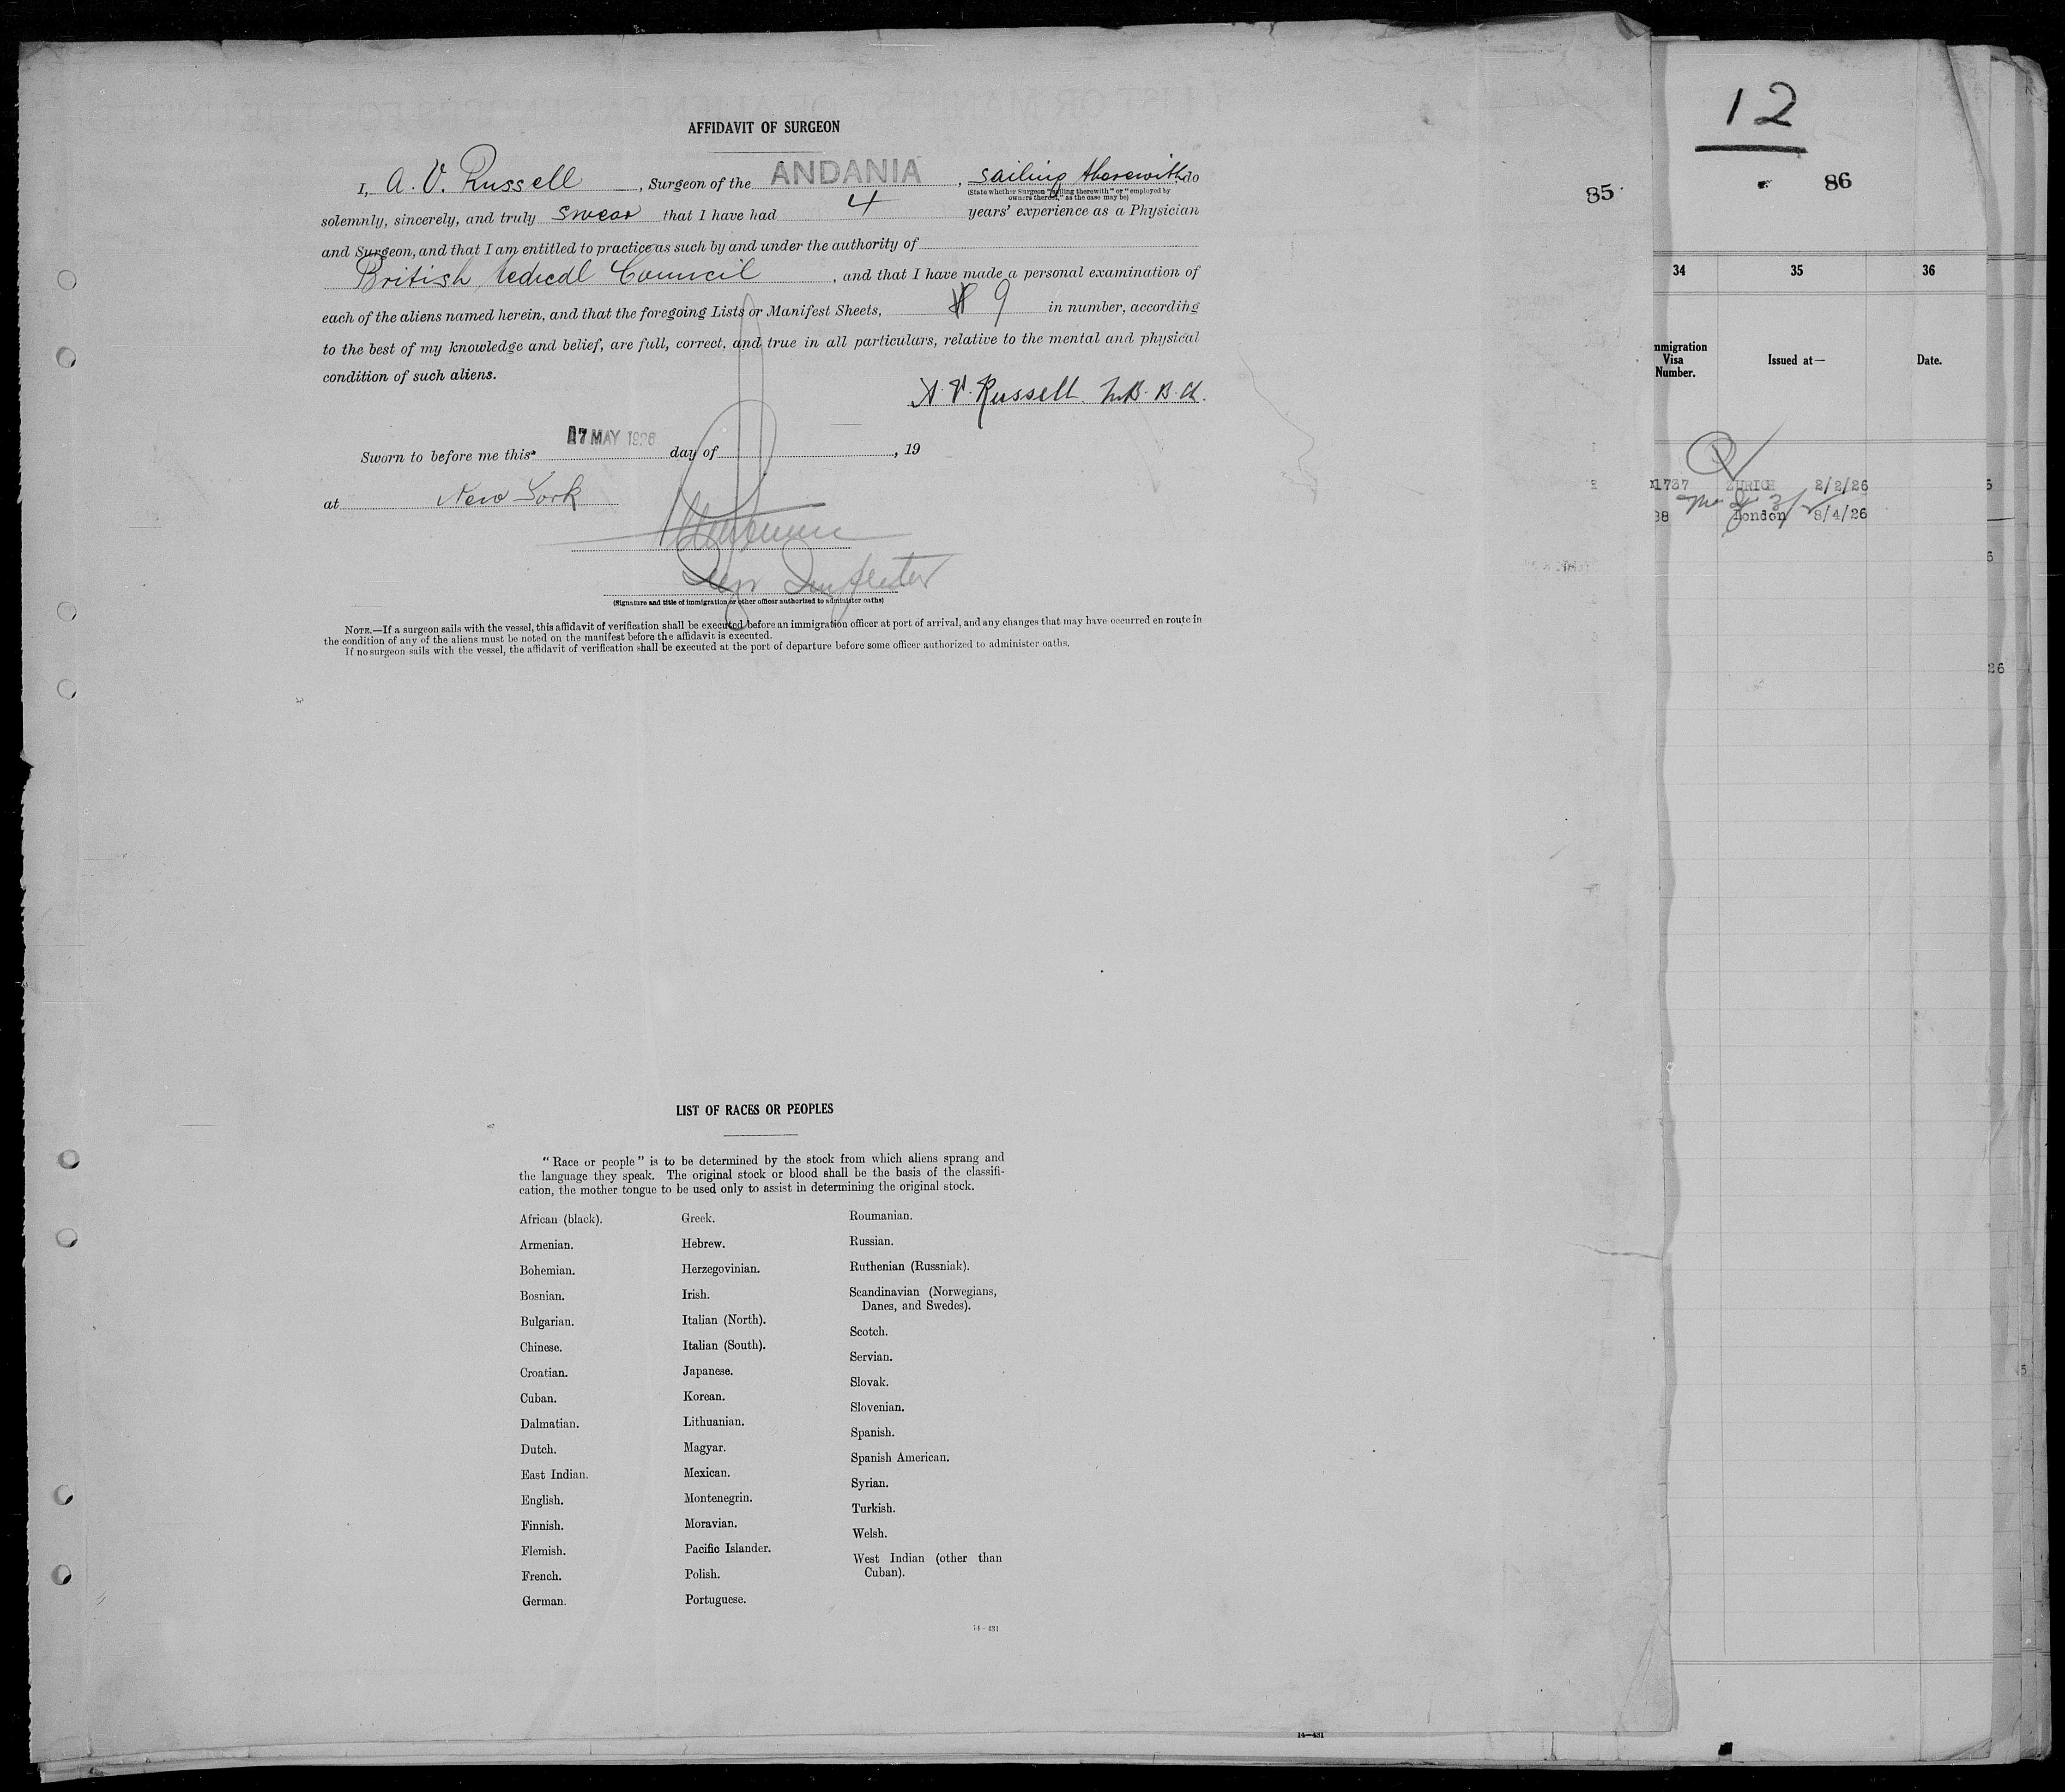 AFFIDAVIT OF SURGEON
I, A. V. Russell, Surgeon of the ANDANIA, sailing therewith, do
(State whether Surgeon "sailing therewith" or "employed by
owners thereof," as the case may be)
solemnly, sincerely, and truly swear that I have had 4 years' experience as a Physician
and Surgeon, and that I am entitled to practice as such by and under the authority of
British Medical Council, and that I have made a personal examination of
each of the aliens named herein, and that the foregoing Lists or Manifest Sheets, 9 in number, according
to the best of my knowledge and belief, are full, correct, and true in all particulars, relative to the mental and physical
condition of such aliens.
A. V. Russell. M.B. B.Ch.
Sworn to before me this 17 MAY 1926 day of , 19
at New York
(Signature and title of immigration or other officer authorized to administer oaths)
NOTE.—If a surgeon sails with the vessel, this affidavit of verification shall be executed before an immigration officer at port of arrival, and any changes that may have occurred en route in
the condition of any of the aliens must be noted on the manifest before the affidavit is executed.
If no surgeon sails with the vessel, the affidavit of verification shall be executed at the port of departure before some officer authorized to administer oaths.
LIST OF RACES OR PEOPLES
"Race or people" is to be determined by the stock from which aliens sprang and
the language they speak. The original stock or blood shall be the basis of the classifi-
cation, the mother tongue to be used only to assist in determining the original stock.
African (black).
Armenian.
Bohemian.
Bosnian.
Bulgarian.
Chinese.
Croatian.
Cuban.
Dalmatian.
Dutch.
East Indian.
English.
Finnish.
Flemish.
French.
German.
Greek.
Hebrew.
Herzegovinian.
Irish.
Italian (North).
Italian (South).
Japanese.
Korean.
Lithuanian.
Magyar.
Mexican.
Montenegrin.
Moravian.
Pacific Islander.
Polish.
Portuguese.
Roumanian.
Russian.
Ruthenian (Russniak).
Scandinavian (Norwegians,
Danes, and Swedes).
Scotch.
Servian.
Slovak.
Slovenian.
Spanish.
Spanish American.
Syrian.
Turkish.
Welsh.
West Indian (other than
Cuban).
14-431
14-431
85
12
86
34 35 36
mmigration
Visa
Number.
Issued at—
Date.
1737 ZURICH 2/2/26
38 London 8/4/26
26